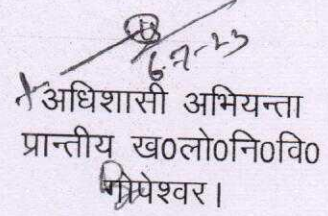 6.7-23
अधिशासी अभियन्ता
प्रान्तीय ख0लो0नि0वि0
गोपेश्वर।